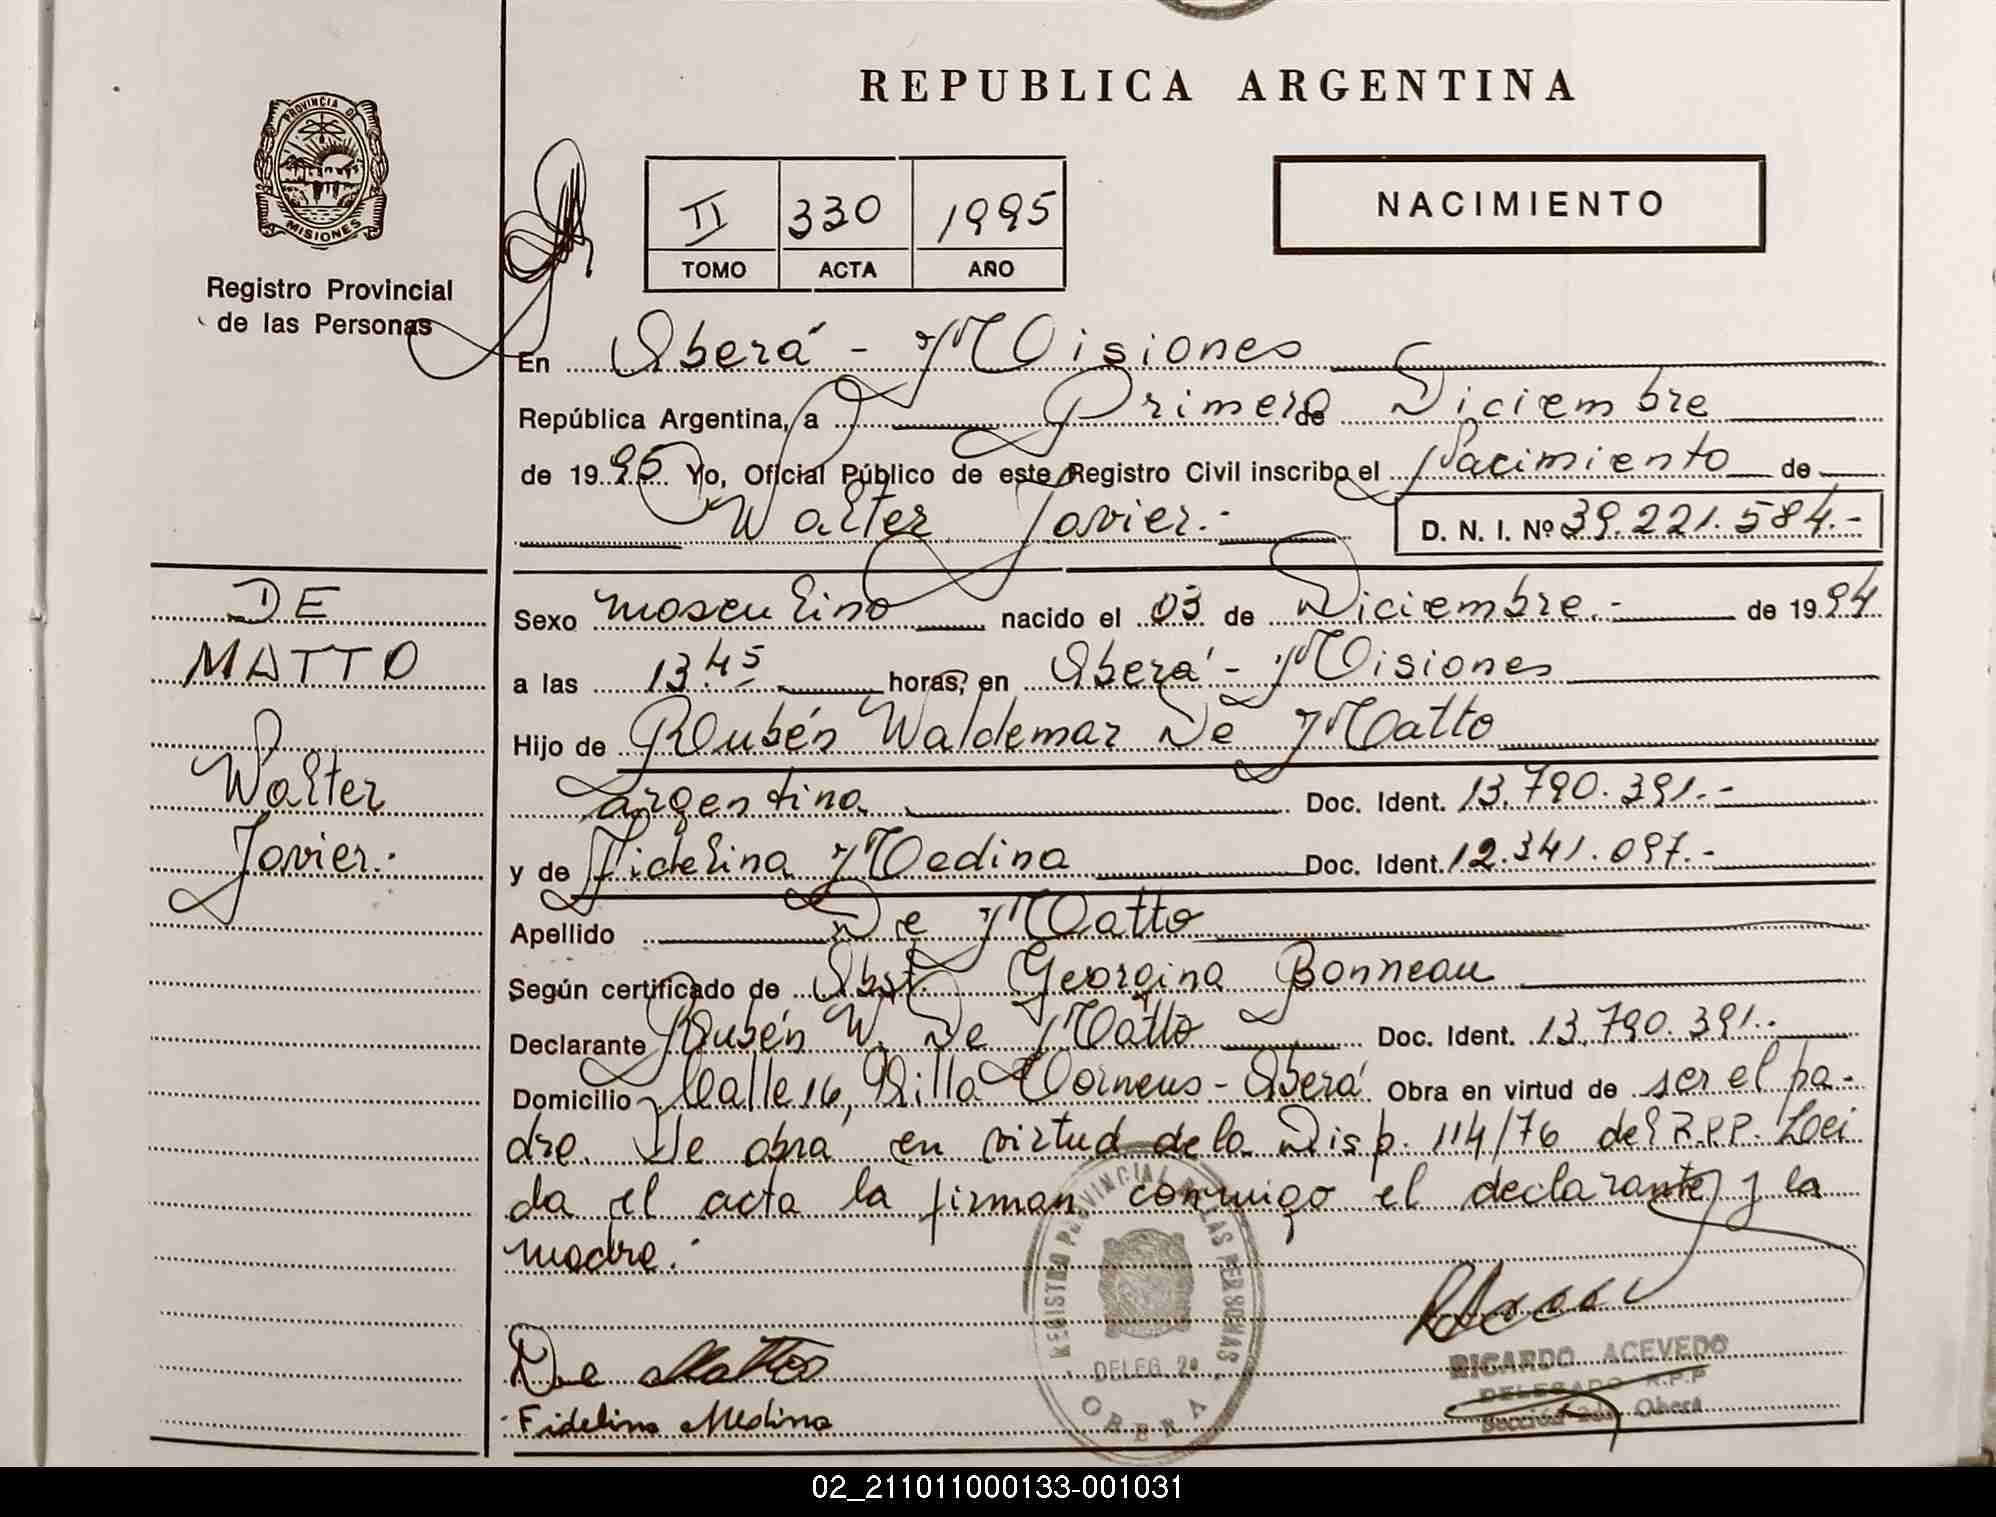 REPUBLICA ARGENTINA
PROVINCIA D
MISIONES
Registro Provincial
de las Personas
II 330 1995
TOMO ACTA AÑO
NACIMIENTO
En Oberá - Misiones
República Argentina, a Primero de Diciembre
de 1995 Yo, Oficial Público de este Registro Civil inscribo el Nacimiento de
Walter Javier.- D. N. I. Nº 39.221.584.-
DE
MATTO
Walter
Javier.-
Sexo masculino nacido el 03 de Diciembre.- de 1994
a las 13.45 horas, en Oberá - Misiones
Hijo de Rubén Waldemar De Matto
argentino. Doc. Ident. 13.790.391.-
y de Fidelina Medina Doc. Ident. 12.341.097.-
Apellido De Matto
Según certificado de Obst. Georgina Bonneau
Declarante Rubén W. De Matto Doc. Ident. 13.790.391.-
Domicilio Calle 16, Villa Oberá Obra en virtud de ser el pa-
dre. De obra en virtud de la Disp. 114/76 del R.P.P. Leí
da el acta la firman conmigo el declarante y la
madre.-
De Matto
Fidelina Medina
REGISTRO PROVINCIAL DE LAS PERSONAS
DELEG. 2a
OBERA
RICARDO ACEVEDO
DELEGADO R.P.P
Sección 2da. Oberá
02_211011000133-001031